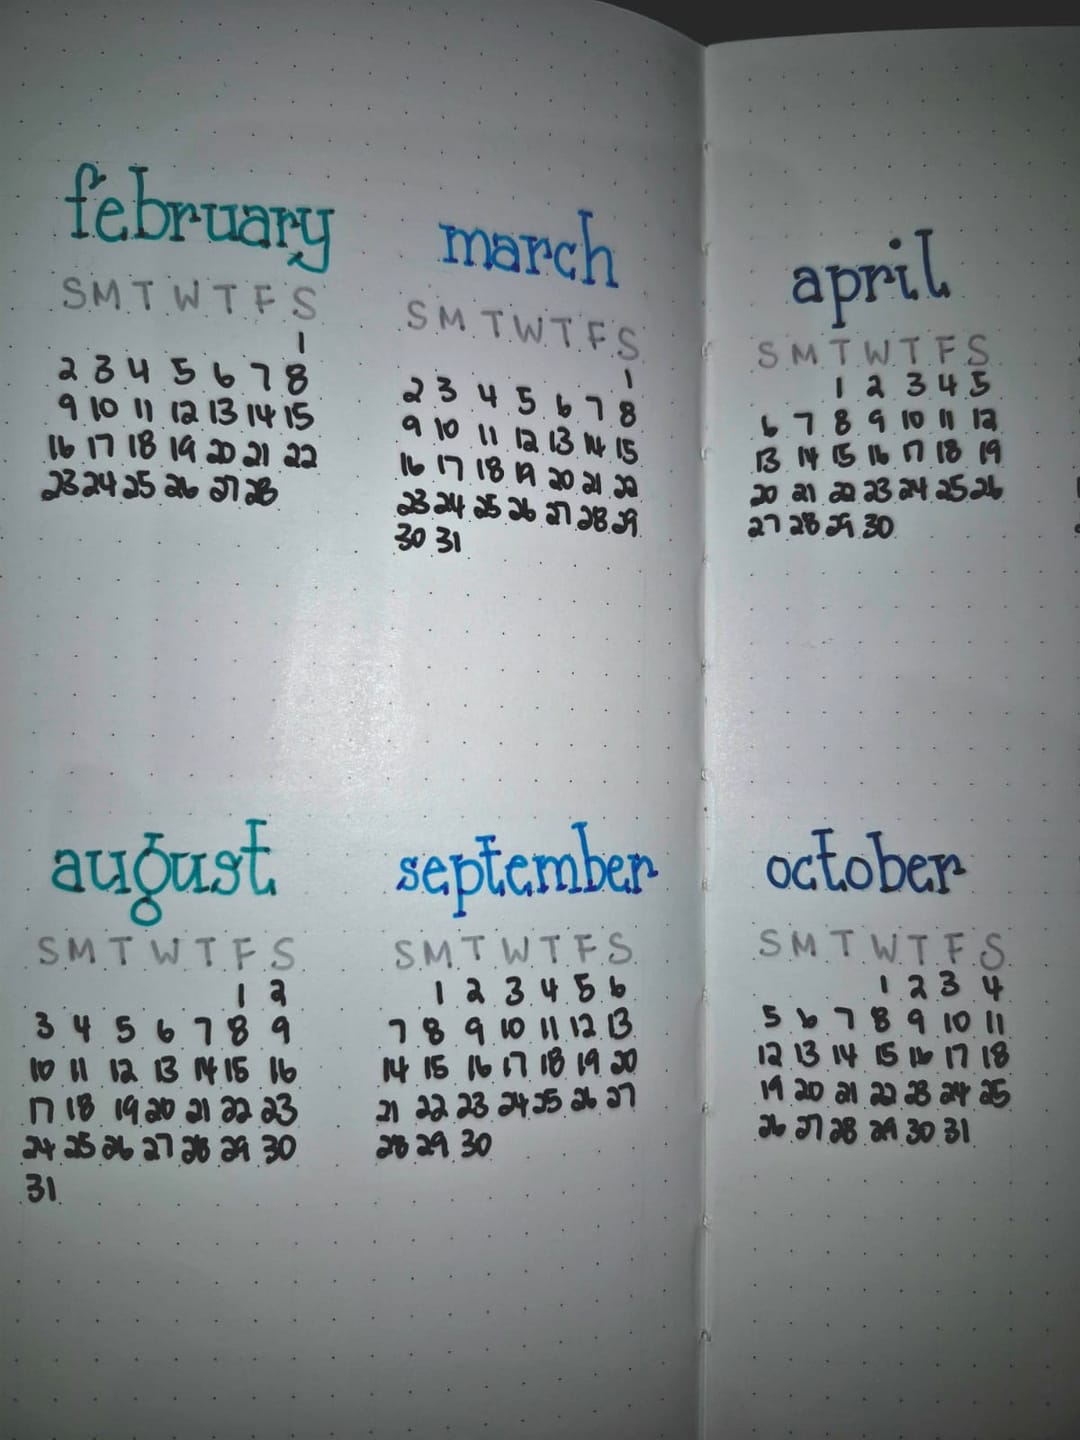 february
S M T W T F S
1
2 3 4 5 6 7 8
9 10 11 12 13 14 15
16 17 18 19 20 21 22
23 24 25 26 27 28
march
S M T W T F S
1
2 3 4 5 6 7 8
9 10 11 12 13 14 15
16 17 18 19 20 21 22
23 24 25 26 27 28 29
30 31
april
S M T W T F S
1 2 3 4 5
6 7 8 9 10 11 12
13 14 15 16 17 18 19
20 21 22 23 24 25 26
27 28 29 30
august
S M T W T F S
1 2
3 4 5 6 7 8 9
10 11 12 13 14 15 16
17 18 19 20 21 22 23
24 25 26 27 28 29 30
31
september
S M T W T F S
1 2 3 4 5 6
7 8 9 10 11 12 13
14 15 16 17 18 19 20
21 22 23 24 25 26 27
28 29 30
october
S M T W T F S
1 2 3 4
5 6 7 8 9 10 11
12 13 14 15 16 17 18
19 20 21 22 23 24 25
26 27 28 29 30 31